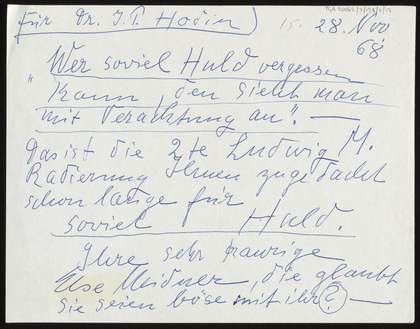 für Dr. J. P. Hodin
15. 28. Nov
68
"Wer soviel Huld vergessen
kann, den sieht man
mit Verachtung an". —
Das ist die 2te Ludwig M.
Radierung Ihnen zugedacht
schon lange für
soviel Huld.
Ihre sehr traurige
Else Meidner, die glaubt
Sie seien böse mit ihr (?) —